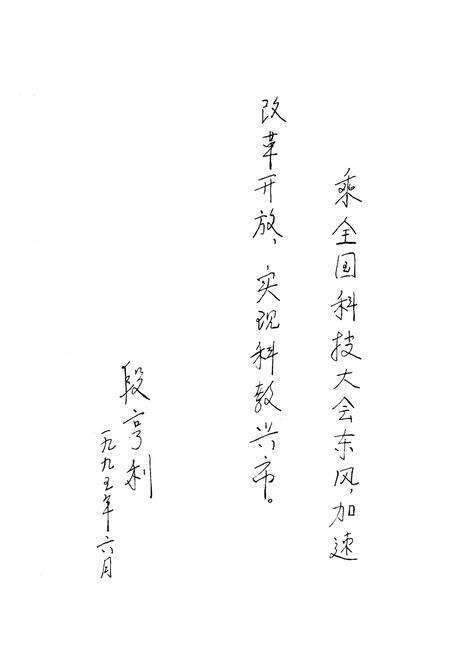 乘全国科技大会东风,加速
改革开放,实现科教兴市。
段亨利
一九九五年六月